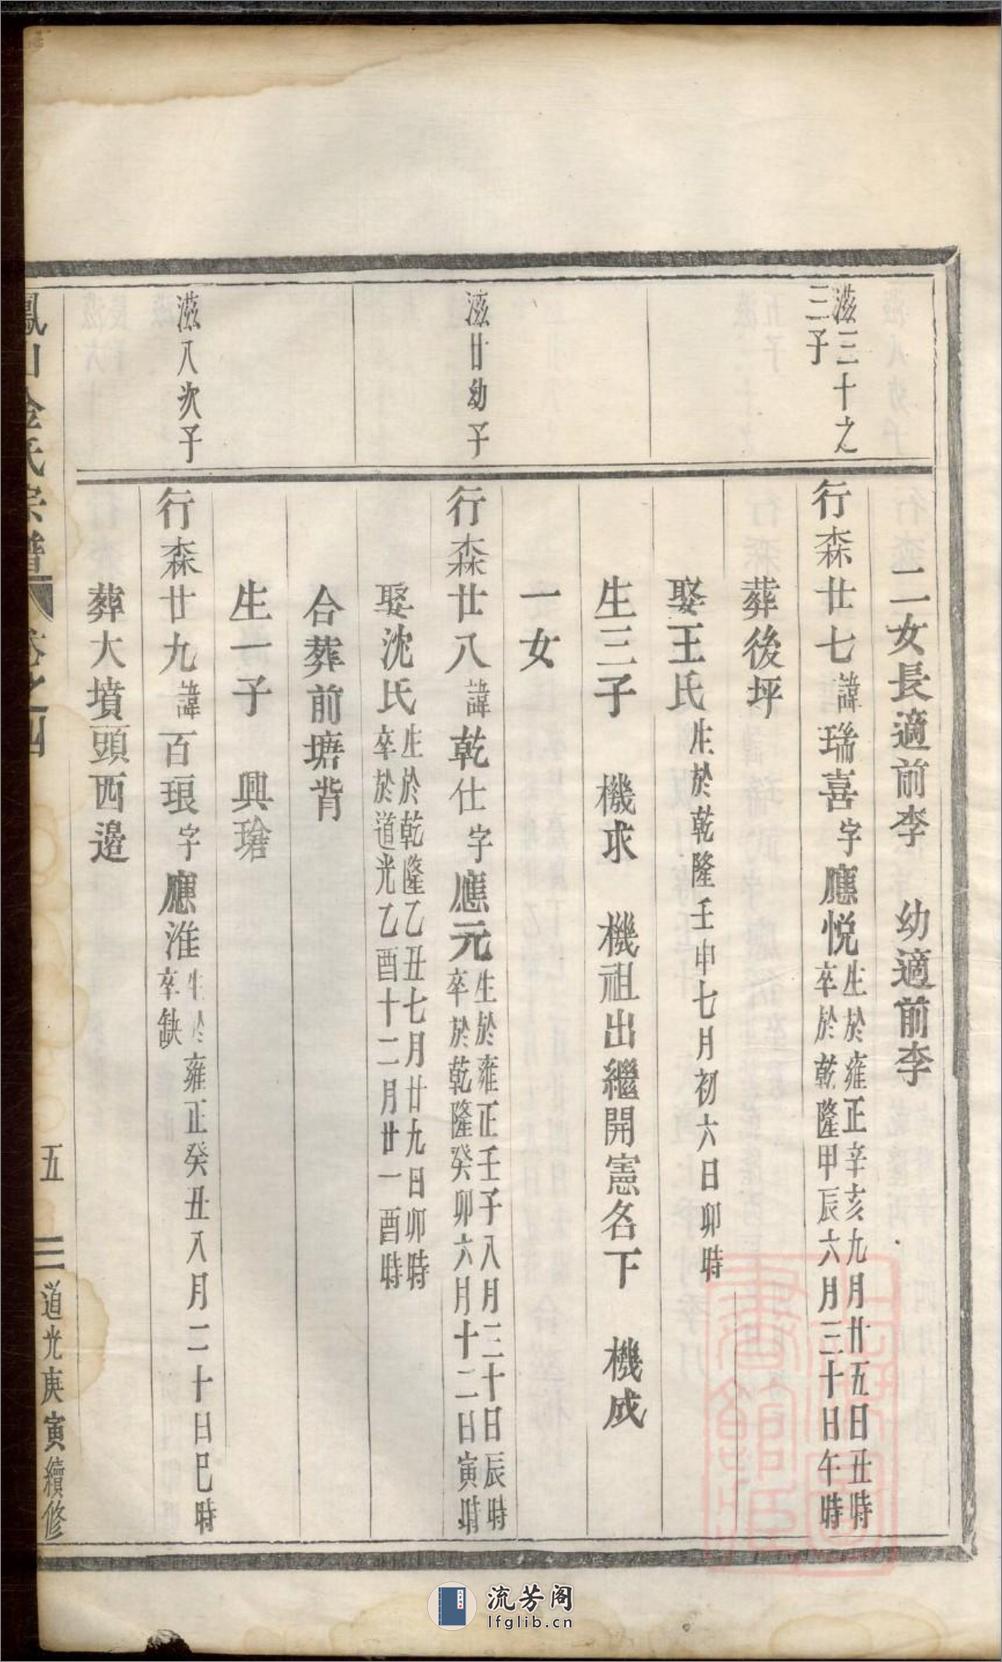 二女長適前李　幼適前李
滋三十之
三子
行森廿七諱瑞喜字應悅生於雍正辛亥九月廿五日丑時
卒於乾隆甲辰六月三十日午時
葬後坪
娶王氏生於乾隆壬申七月初六日卯時
生三子　機求　機祖出繼開憲名下　機成
一女
滋廿幼子
行森廿八諱乾仕字應元生於雍正壬子八月三十日辰時
卒於乾隆癸卯六月十二日寅時
娶沈氏生於乾隆乙丑七月廿九日卯時
卒於道光乙酉十二月廿一酉時
合葬前塘背
生一子　興瑲
滋八次子
行森廿九諱百琅字應淮生於雍正癸丑八月二十日巳時
卒缺
葬大墳頭西邊
鳳山金氏宗譜　卷之四　五　三　道光庚寅續修
流芳阁
lfglib.cn